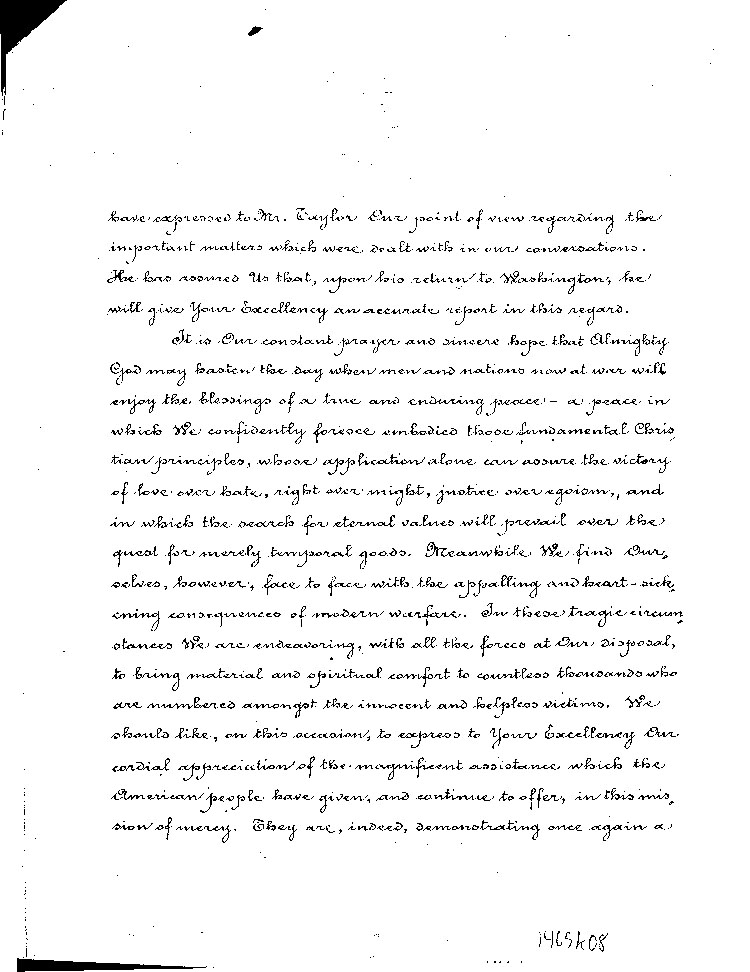 have expressed to Mr. Taylor Our point of view regarding the
important matters which were dealt with in our conversations.
He has assured Us that, upon his return to Washington, he
will give Your Excellency an accurate report in this regard.
It is Our constant prayer and sincere hope that Almighty
God may hasten the day when men and nations now at war will
enjoy the blessings of a true and enduring peace - a peace in
which We confidently foresee embodied those fundamental Chris
tian principles, whose application alone can assure the victory
of love over hate, right over might, justice over egoism, and
in which the search for eternal values will prevail over the
quest for merely temporal goods. Meanwhile We find Our,
selves, however, face to face with the appalling and heart-sick,
ening consequences of modern warfare. In these tragic circum
stances We are endeavoring, with all the forces at Our disposal,
to bring material and spiritual comfort to countless thousands who
are numbered amongst the innocent and helpless victims. We
should like, on this occasion, to express to Your Excellency Our
cordial appreciation of the magnificent assistance which the
American people have given, and continue to offer, in this mis,
sion of mercy. They are, indeed, demonstrating once again a
1465h08